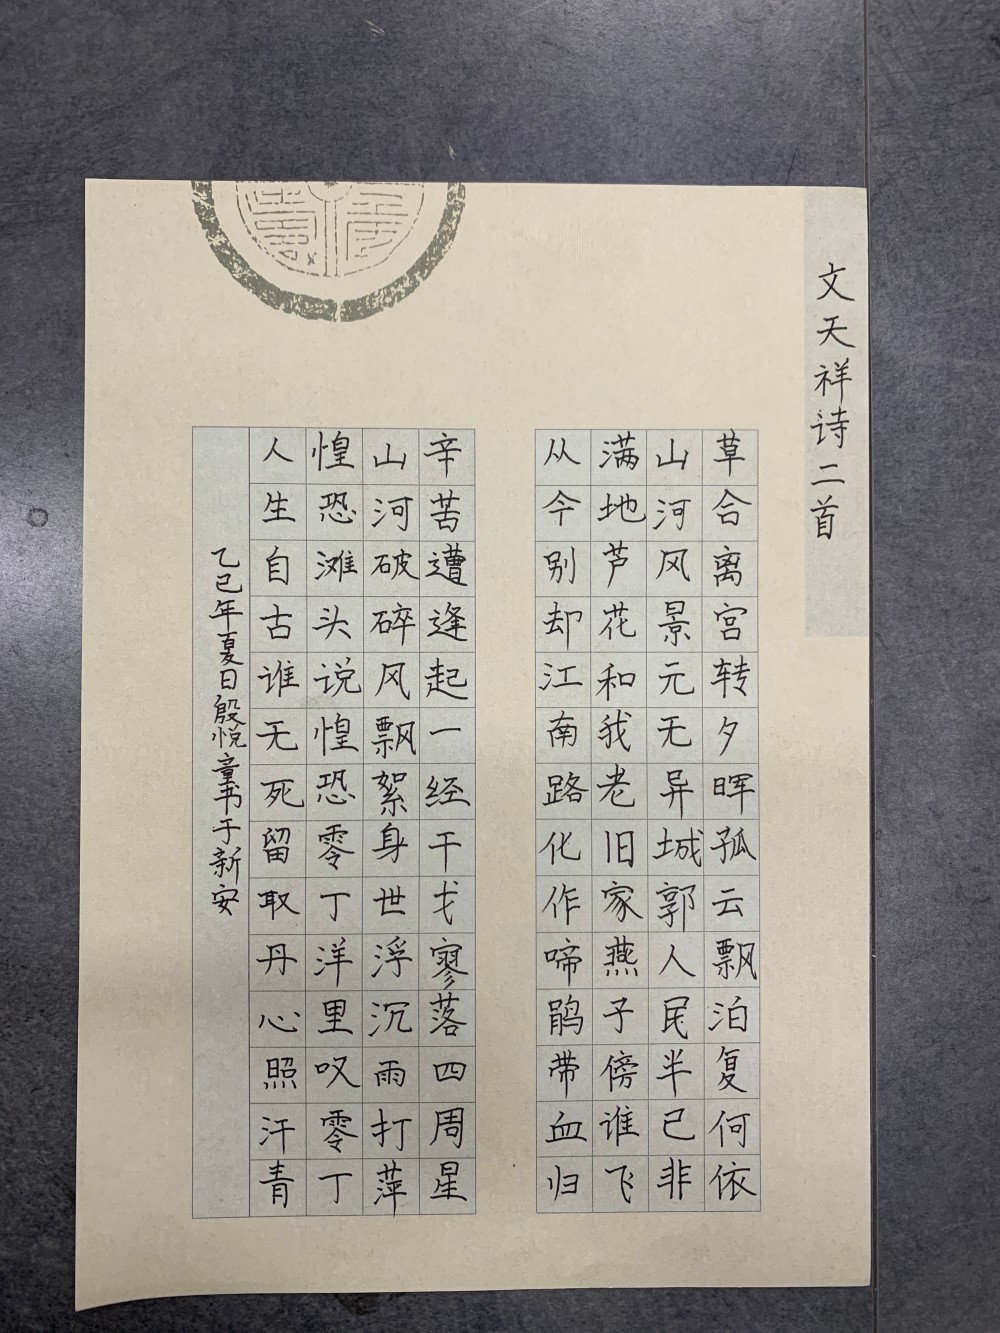 文天祥诗二首
草合离宫转夕晖孤云飘泊复何依
山河风景元无异城郭人民半已非
满地芦花和我老旧家燕子傍谁飞
从今别却江南路化作啼鹃带血归
辛苦遭逢起一经干戈寥落四周星
山河破碎风飘絮身世浮沉雨打萍
惶恐滩头说惶恐零丁洋里叹零丁
人生自古谁无死留取丹心照汗青
乙巳年夏日殷悦童书于新安